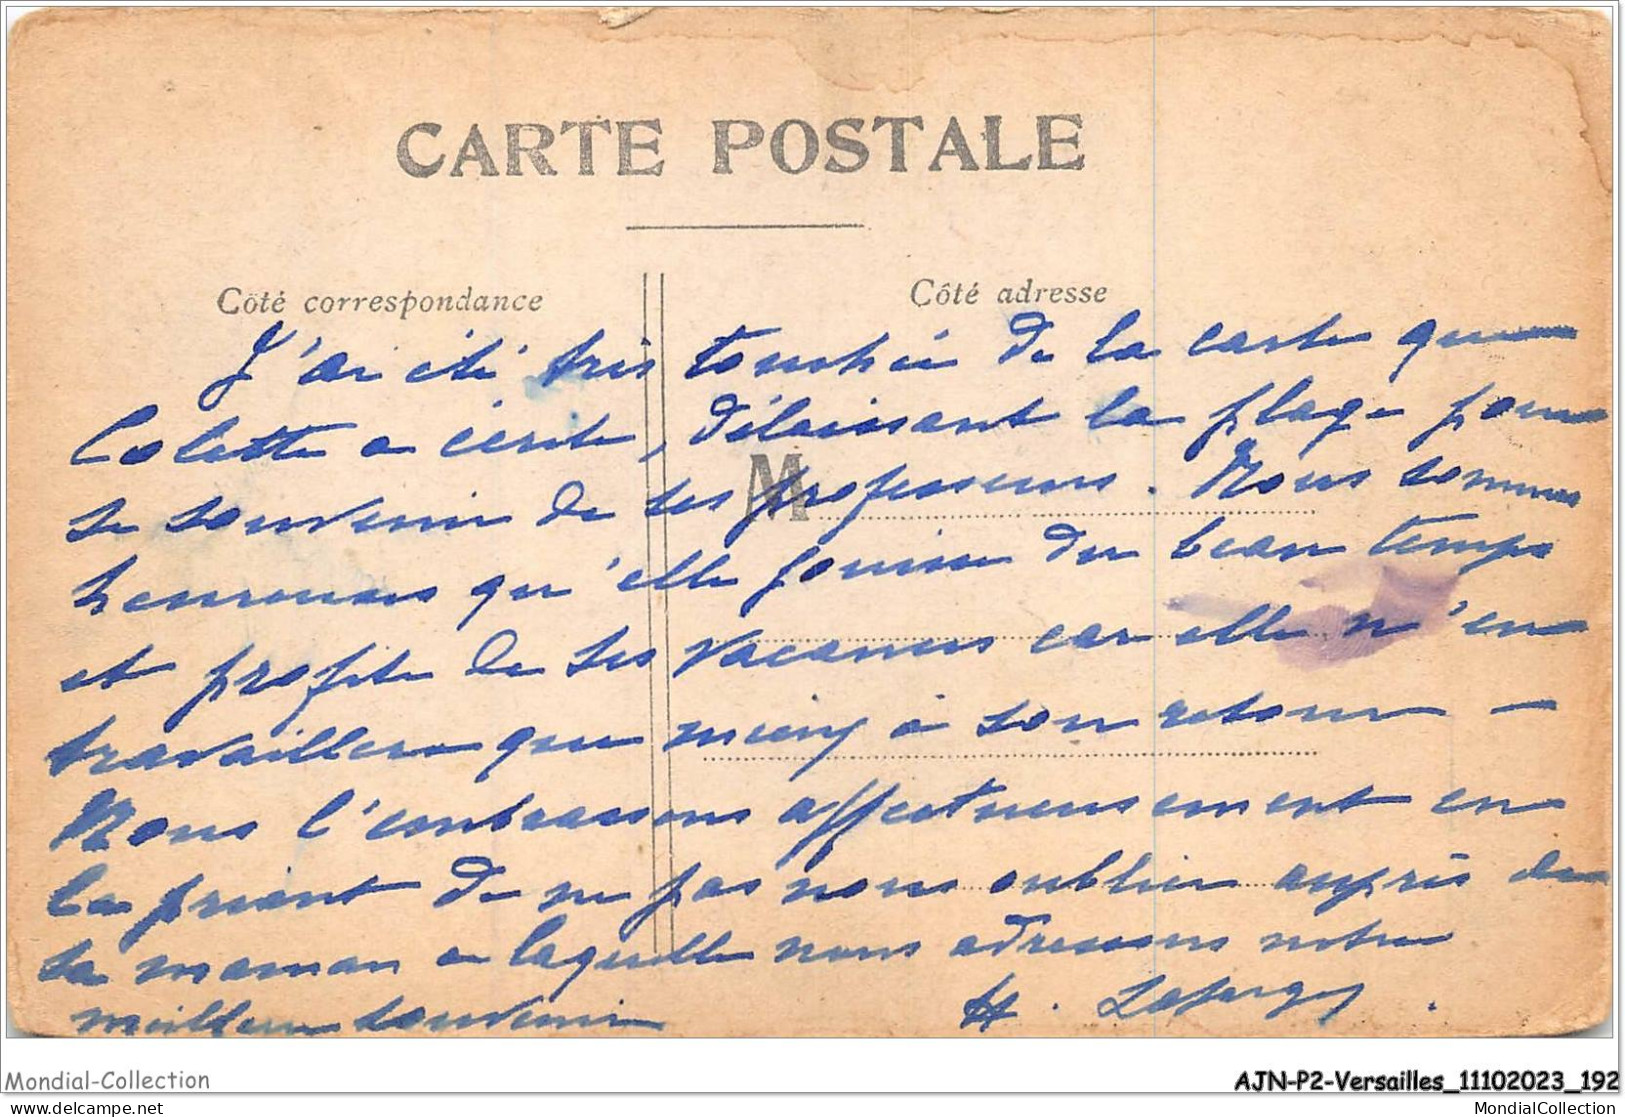 CARTE POSTALE
Côté correspondance
Côté adresse
J'ai été très touchée de la carte que
Colette a écrite, délaissant la plage pour
se souvenir de ses professeurs. Nous sommes
M
heureuses qu'elle jouisse du beau temps
et profite de ses vacances car elle n'en
travaillera que mieux à son retour —
Nous l'embrassons affectueusement en
la priant de ne pas nous oublier auprès de
sa maman à laquelle nous adressons notre
meilleur souvenir
H. Lafargue.
Mondial-Collection
AJN-P2-Versailles_11102023_192
delcampe.net
MondialCollection